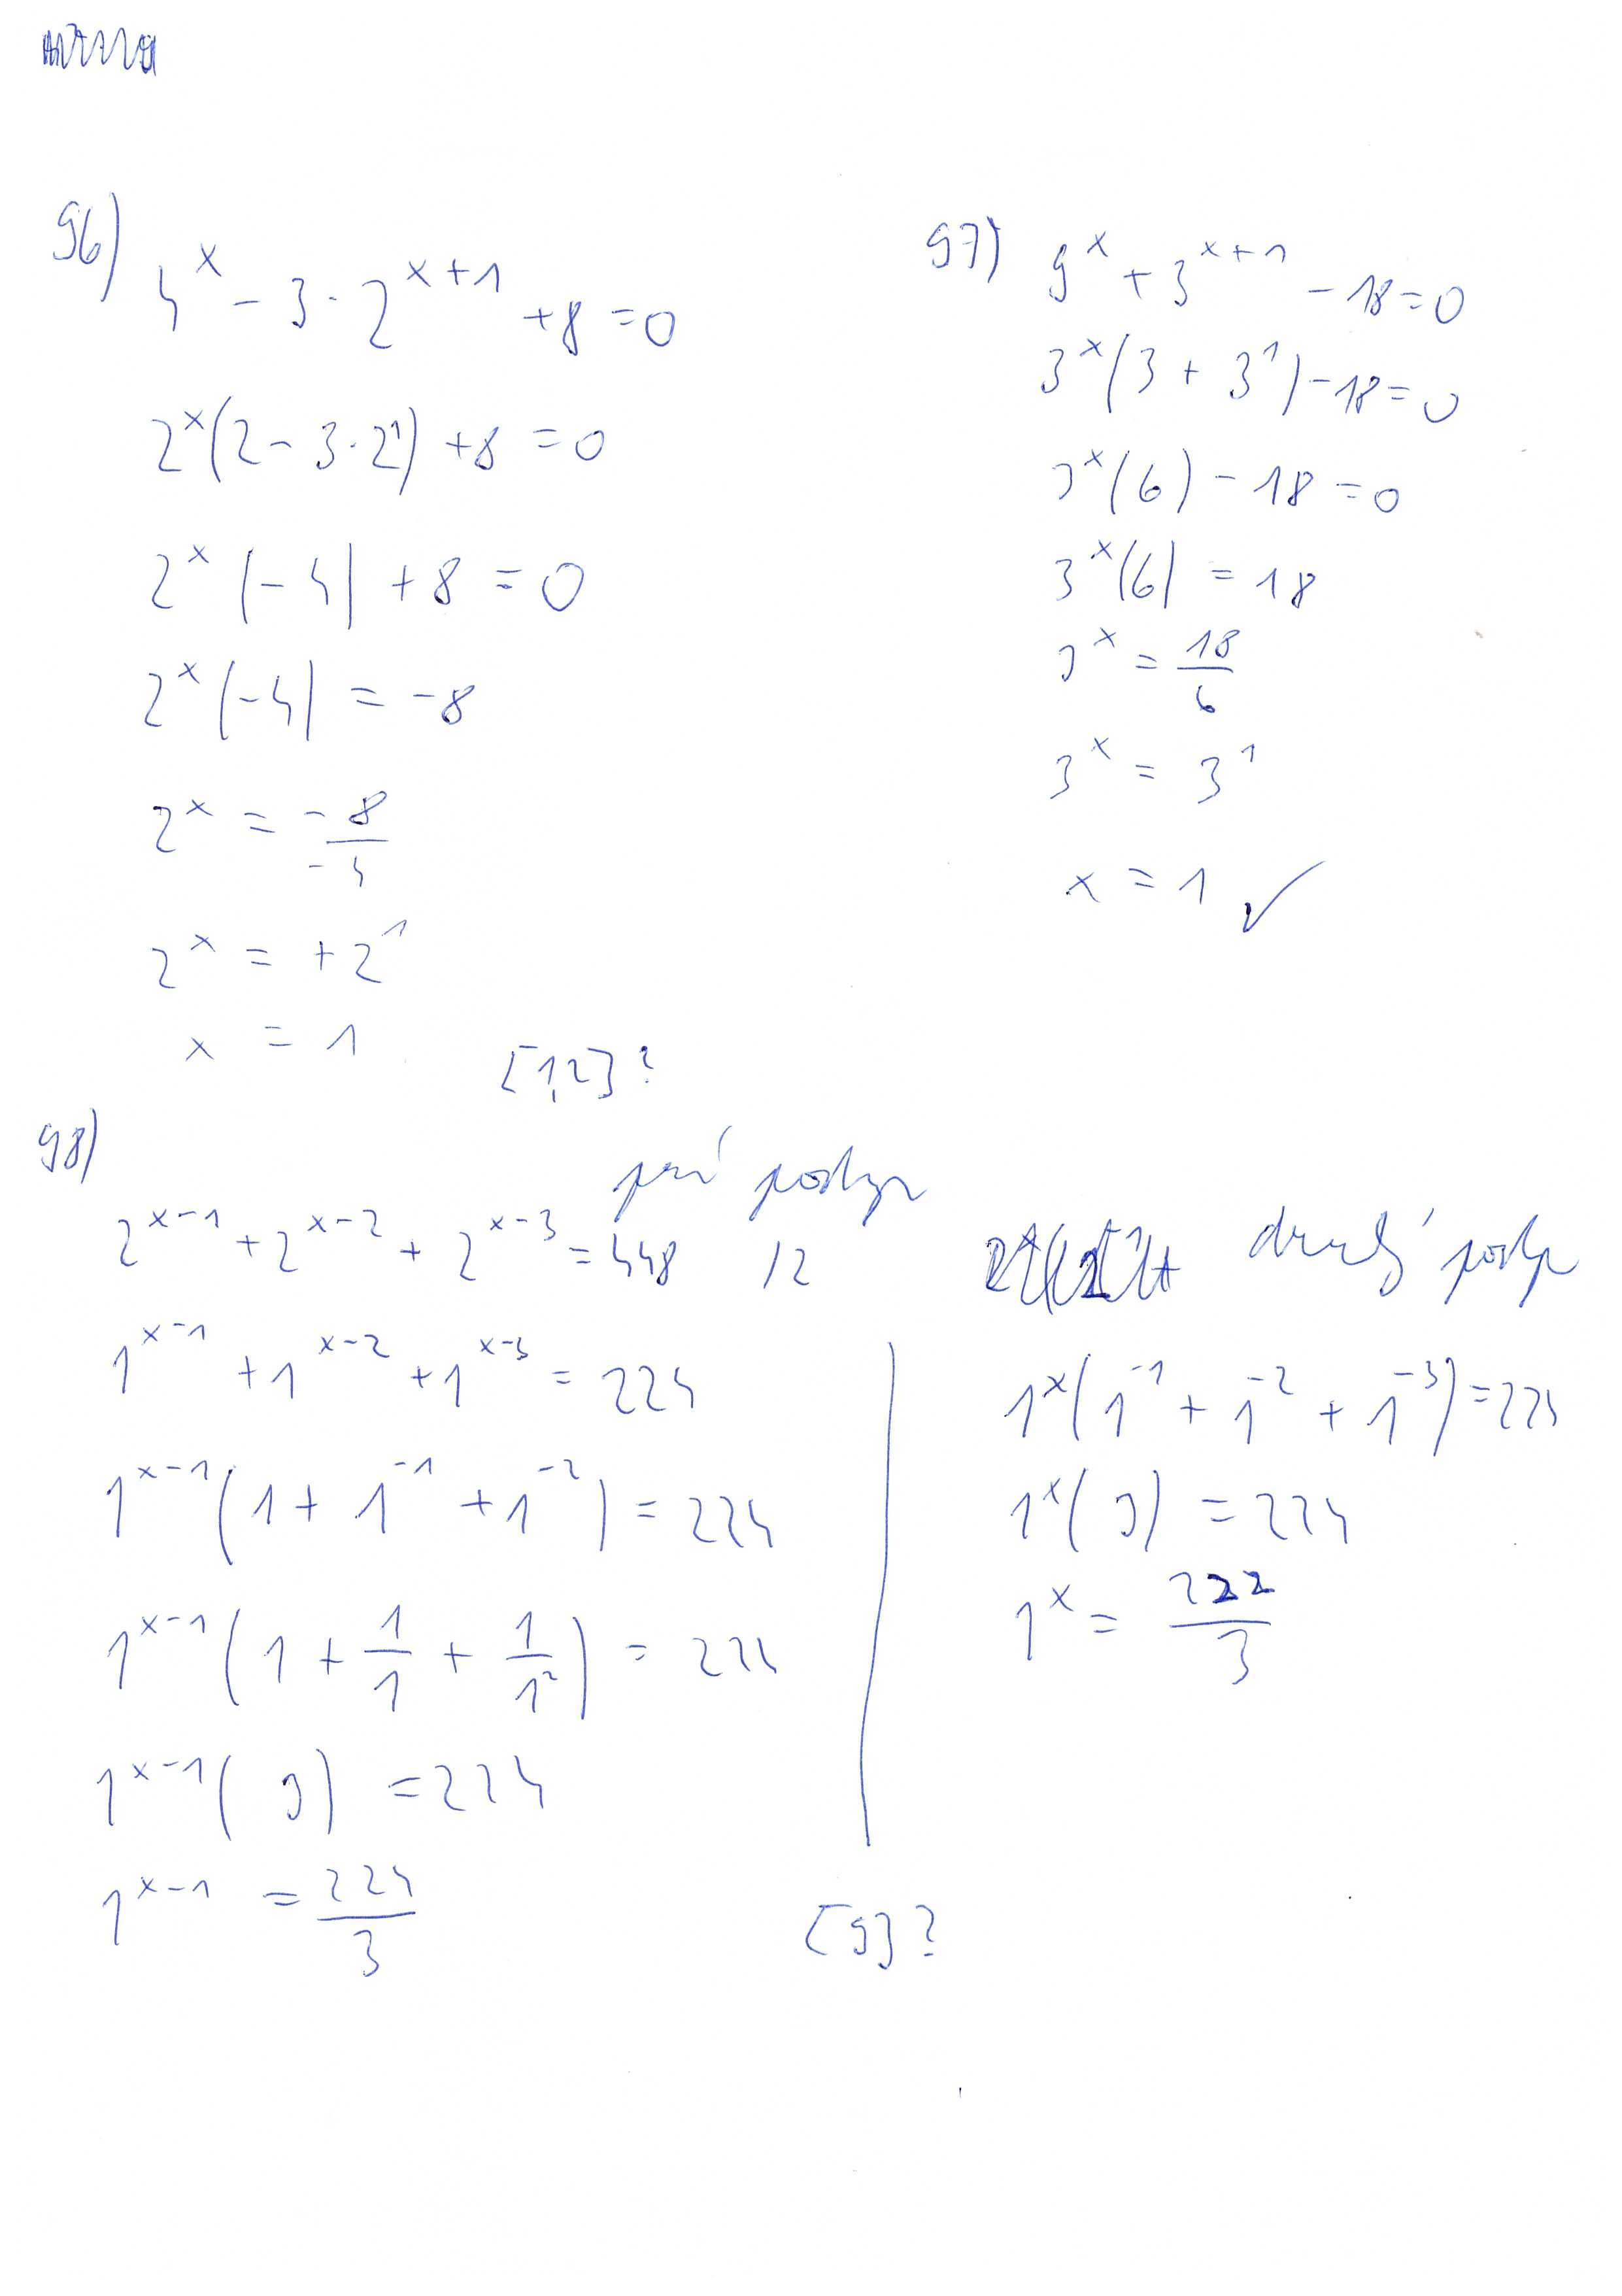 96)
4^x - 3 · 2^(x+1) + 8 = 0
2^x (2 - 3 · 2^1) + 8 = 0
2^x (-4) + 8 = 0
2^x (-4) = -8
2^x = -8/-4
2^x = +2^1
x = 1
[1,2] ?
97)
9^x + 3^(x+1) - 18 = 0
3^x (3 + 3^1) - 18 = 0
3^x (6) - 18 = 0
3^x (6) = 18
3^x = 18/6
3^x = 3^1
x = 1 ✓
98)
první postup
2^(x-1) + 2^(x-2) + 2^(x-3) = 448 /2
1^(x-1) + 1^(x-2) + 1^(x-3) = 224
1^(x-1) (1 + 1^(-1) + 1^(-2)) = 224
1^(x-1) (1 + 1/1 + 1/1^2) = 224
1^(x-1) (3) = 224
1^(x-1) = 224/3
druhý postup
1^x (1^(-1) + 1^(-2) + 1^(-3)) = 224
1^x (3) = 224
1^x = 222/3
[9] ?